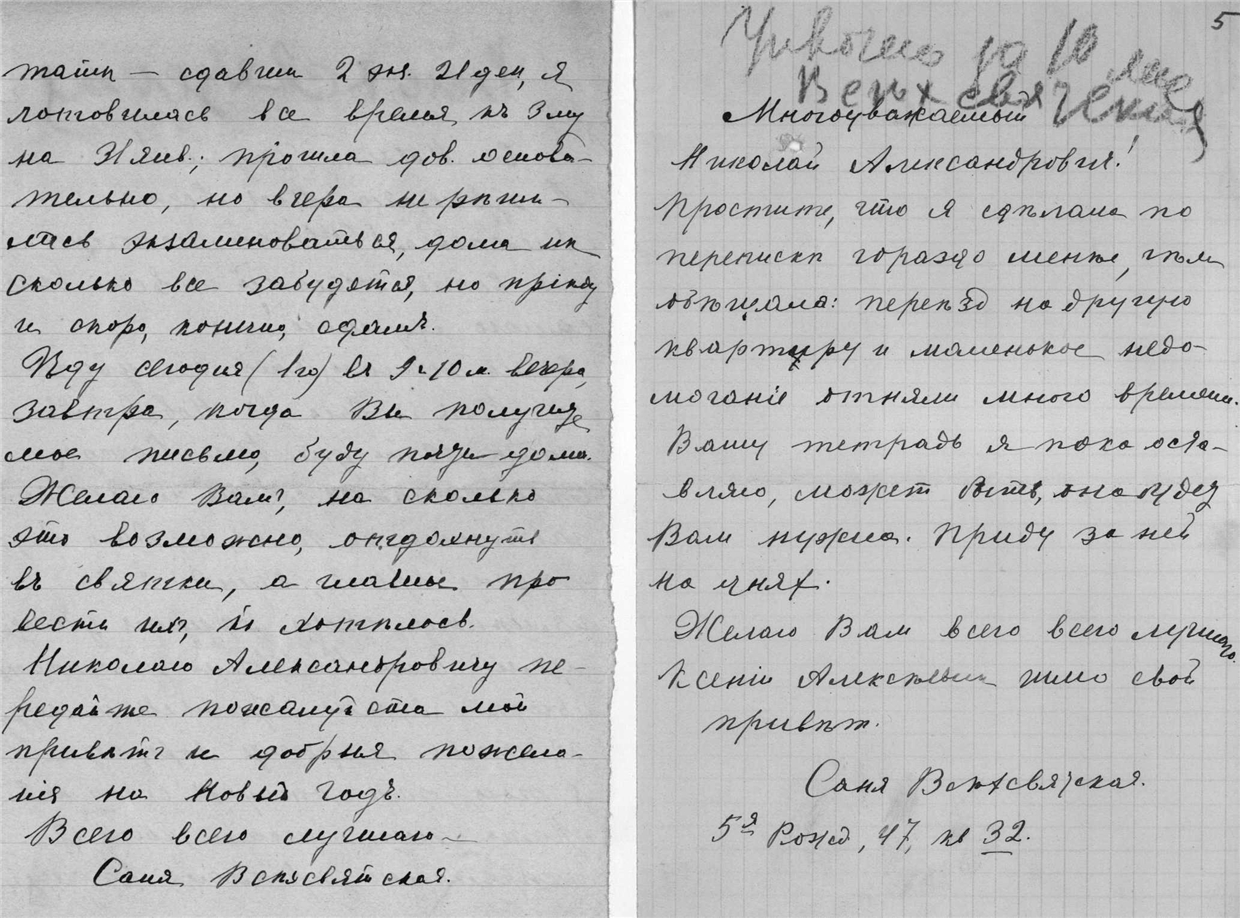 тами — сдавши 2 экз. 21 дек, я
готовилась все время къ Зму
на Янв.; прошла дов. основа-
тельно, но вчера не рѣши-
лась экзаменоваться, дома
сколько все забудется, но пріѣду
и скоро, конечно, сдамъ.
Ѣду сегодня (1го) въ 9 ч. 10 м. вечера,
завтра, когда Вы получите
мое письмо, буду почти дома.
Желаю Вамъ, на сколько
это возможно, отдохнуть
въ святки, а главное про
вести ихъ, хотѣлось.
Николаю Александровичу пе-
редайте пожалуйста мой
привѣтъ и добрыя пожела-
нія на Новый годъ.
Всего всего лучшаго —
Саня Всѣхсвятская.
5
за 10 мая
Многоуважаемый
Николай Александрович!
Простите, что я сдѣлала по
перепискѣ гораздо менѣе, чѣм
обѣщала: переѣзд на другую
квартиру и маленькое недо-
моганіе отняли много времени.
Вашу тетрадь я пока оста-
вляю, может быть, она будет
Вам нужна. Приду за ней
на днях.
Желаю Вам всего всего лучшаго.
Ксеніи Алексѣевнѣ шлю свой
привѣт.
Саня Всѣхсвятская.
5я Рожд, 47, кв 32.